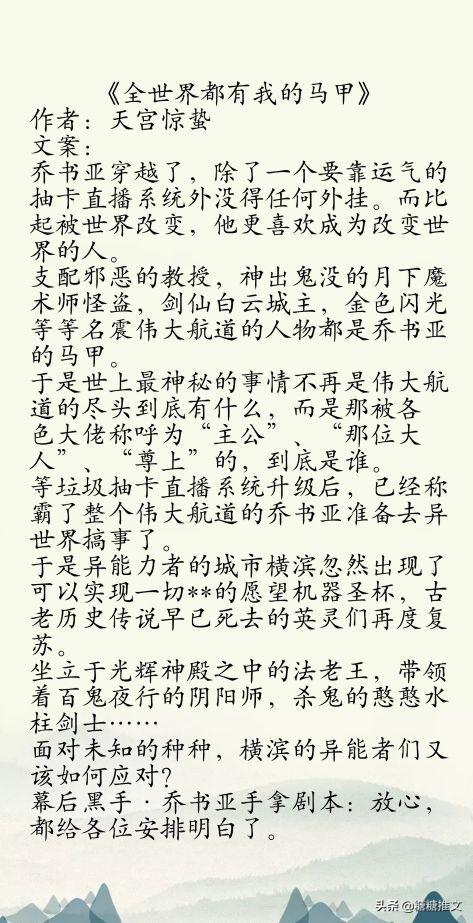 《全世界都有我的马甲》
作者：天宫惊蛰
文案：
乔书亚穿越了，除了一个要靠运气的
抽卡直播系统外没得任何外挂。而比
起被世界改变，他更喜欢成为改变世
界的人。
支配邪恶的教授，神出鬼没的月下魔
术师怪盗，剑仙白云城主，金色闪光
等等名震伟大航道的人物都是乔书亚
的马甲。
于是世上最神秘的事情不再是伟大航
道的尽头到底有什么，而是那被各
色大佬称呼为“主公”、“那位大
人”、“尊上”的，到底是谁。
等垃圾抽卡直播系统升级后，已经称
霸了整个伟大航道的乔书亚准备去异
世界搞事了。
于是异能力者的城市横滨忽然出现了
可以实现一切**的愿望机器圣杯，古
老历史传说早已死去的英灵们再度复
苏。
坐立于光辉神殿之中的法老王，带领
着百鬼夜行的阴阳师，杀鬼的憨憨水
柱剑士……
面对未知的种种，横滨的异能者们又
该如何应对？
幕后黑手·乔书亚手拿剧本：放心，
都给各位安排明白了。
头条@糖糖推文